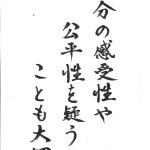 分の感受性や
公平性を疑う
ことも大